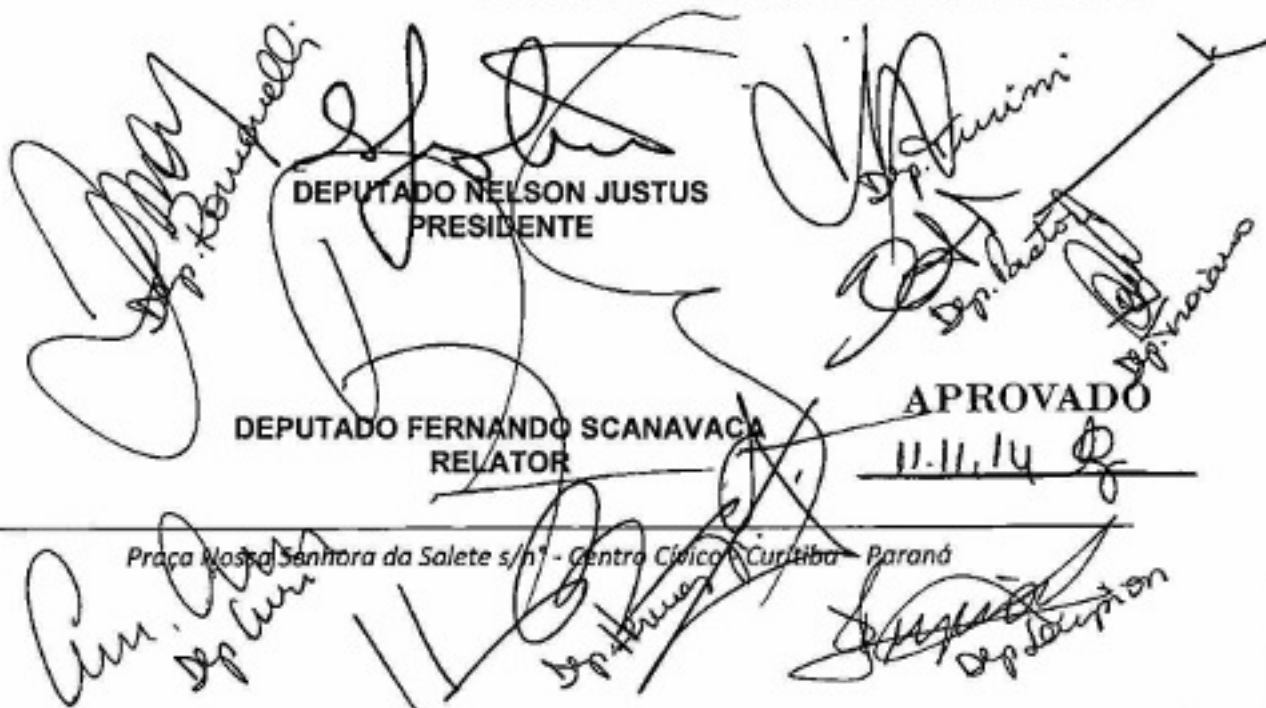 Dep. Romanelli
DEPUTADO NELSON JUSTUS
PRESIDENTE
Dep. Pastor
Dep. Traiano
DEPUTADO FERNANDO SCANAVACA
RELATOR
APROVADO
11.11.14
Praça Nossa Senhora da Salete s/nº - Centro Cívico - Curitiba - Paraná
Dep Curi
Dep. Hermas